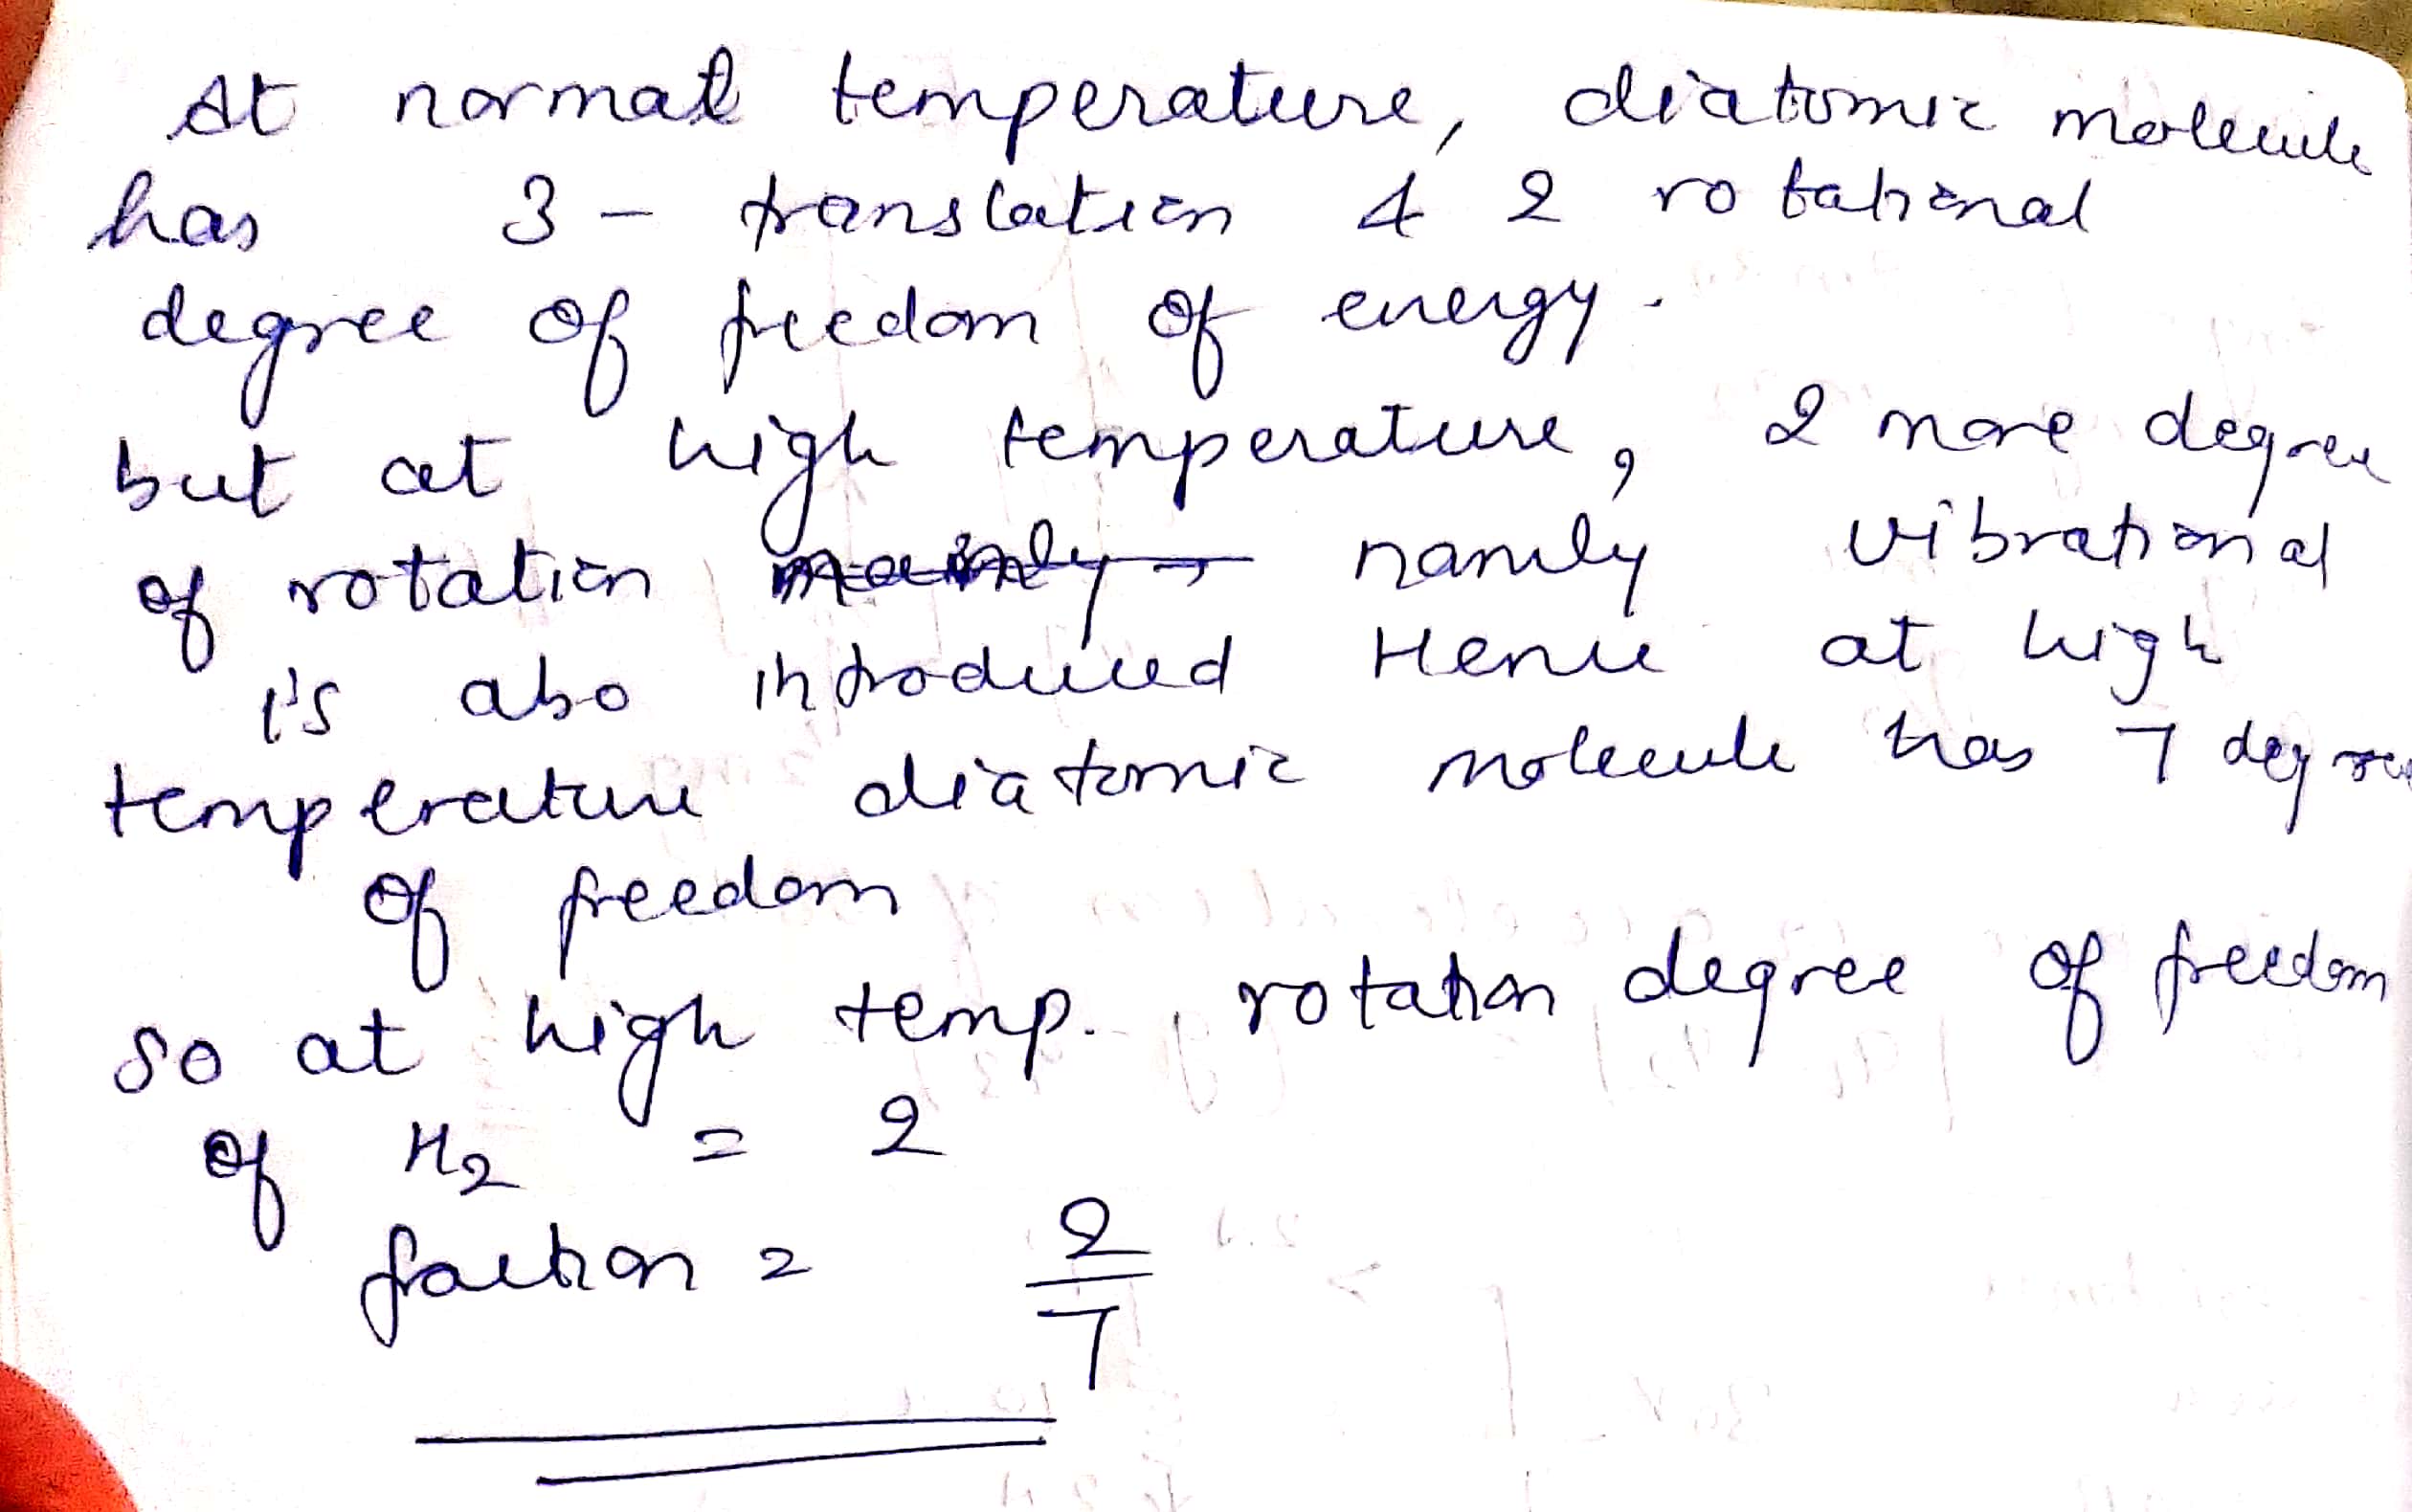 At normal temperature, diatomic molecule
has 3 - translation & 2 rotational
degree of freedom of energy.
but at high temperature, 2 more degree
of rotation mainly namely vibrational
is also introduced Hence at high
temperature diatomic molecule has 7 degree
of freedom
so at high temp. , rotation degree of freedom
of H₂ = 2
fraction = 2/7